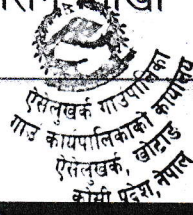 ऐसेलुखर्क गाउँपालिका
गाउँ कार्यपालिकाको कार्यालय
ऐसेलुखर्क, खोटाङ
कोसी प्रदेश, नेपाल